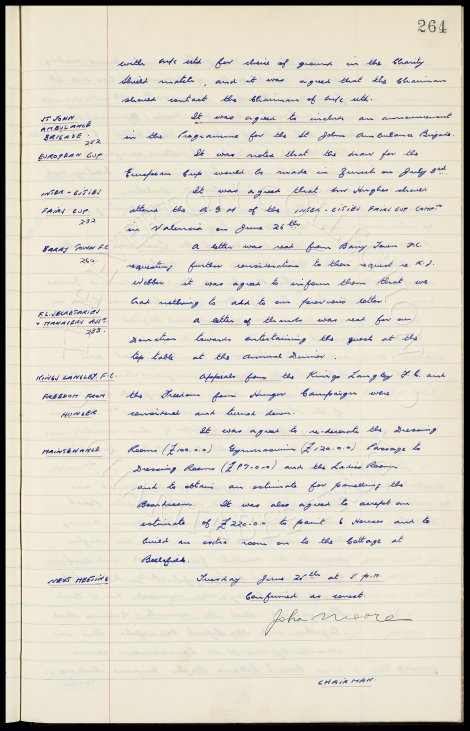 264
with M/c Utd for choice of ground in the Charity
Shield match, and it was agreed that the Chairman
should contact the Chairman of M/c Utd.
ST JOHN AMBULANCE BRIGADE. 252
It was agreed to include an announcement
in the Programme for the St Johns Ambulance Brigade.
EUROPEAN CUP
It was noted that the draw for the
European Cup would be made in Zurich on July 3rd.
INTER-CITIES FAIRS CUP 252
It was agreed that Mr Hughes should
attend the A.G.M of the INTER-CITIES FAIRS CUP COMPTN
in Valencia on June 26th
BARRY TOWN F.C. 262
A letter was read from Barry Town F.C
requesting further consideration to their request re K.J.
Webber it was agreed to inform them that we
had nothing to add to our previous letter.
F.L. SECRETARIES + MANAGERS ASSN 255
A letter of thanks was read for our
Donation towards entertaining the guests at the
top table at the Annual Dinner.
KINGS LANGLEY F.C.
Appeals from the Kings Langley F.C. and
FREEDOM FROM HUNGER
the Freedom from Hunger Campaign were
considered and turned down.
It was agreed to re-decorate the, Dressing
MAINTENANCE
Rooms (£100.0.0) Gymnasium (£120.0.0) Passage to
Dressing Rooms (£87.0.0) and the Ladies Room
and to obtain an estimate for panelling the
Boardroom. It was also agreed to accept an
estimate of £220.0.0 to paint 6 Houses and to
build an extra room on to the Cottage at
Bellefield.
NEXT MEETING
Tuesday June 25th at 5 p.m.
Confirmed as correct.
John Moores
CHAIRMAN